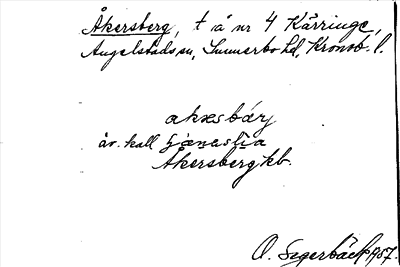 Åkersberg, t å nr 4 Kärringe,
Angelstads sn, Sunnerbo hd, Kronob. l.
akɘsbárj
äv. kall
Åkersberg kb.
O. Segerbäck 1957.